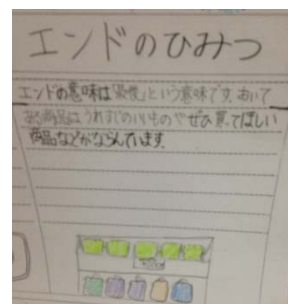 エンドのひみつ
エンドの意味は「最後」という意味です。おいて
ある商品はうれすじのいいものやぜひ買ってほしい
商品などがならんでいます。